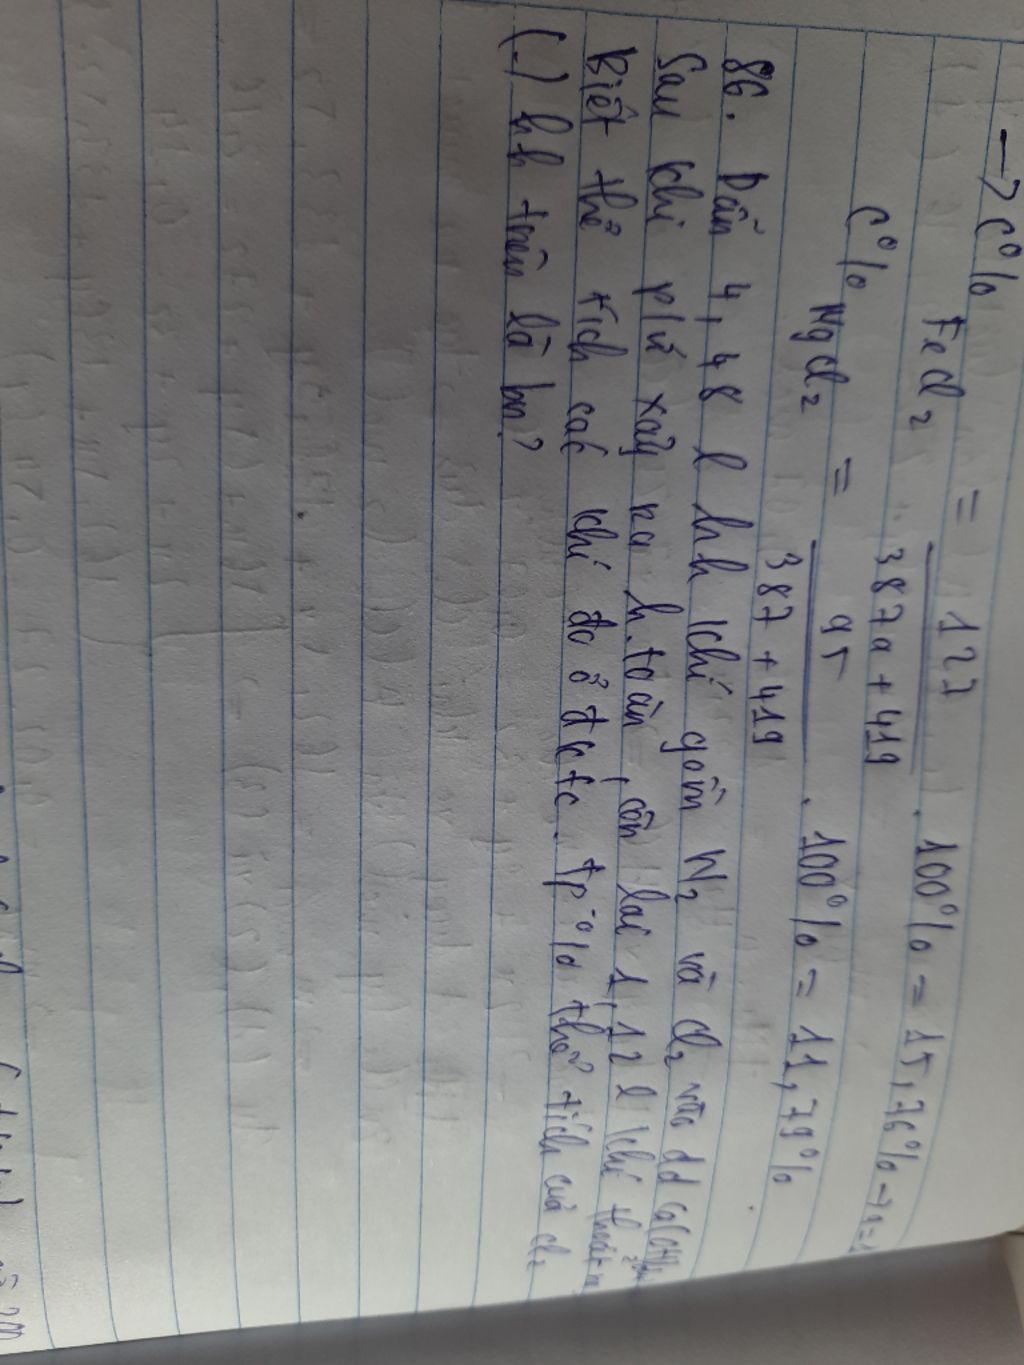 → C% FeCl₂ = 127 / 387a + 419 . 100% = 15,76% → a=1
C% MgCl₂ = 95 / 387 + 419 . 100% = 11,79%
86. Dẫn 4,48 l hh khí gồm N₂ và Cl₂ vào dd Ca(OH)₂
Sau khi p/ứ xảy ra h.toàn, còn lại 1,12 l khí thoát ra
Biết thể tích các khí đo ở đktc. tp % thể tích của Cl₂
(-) hh trên là bn?